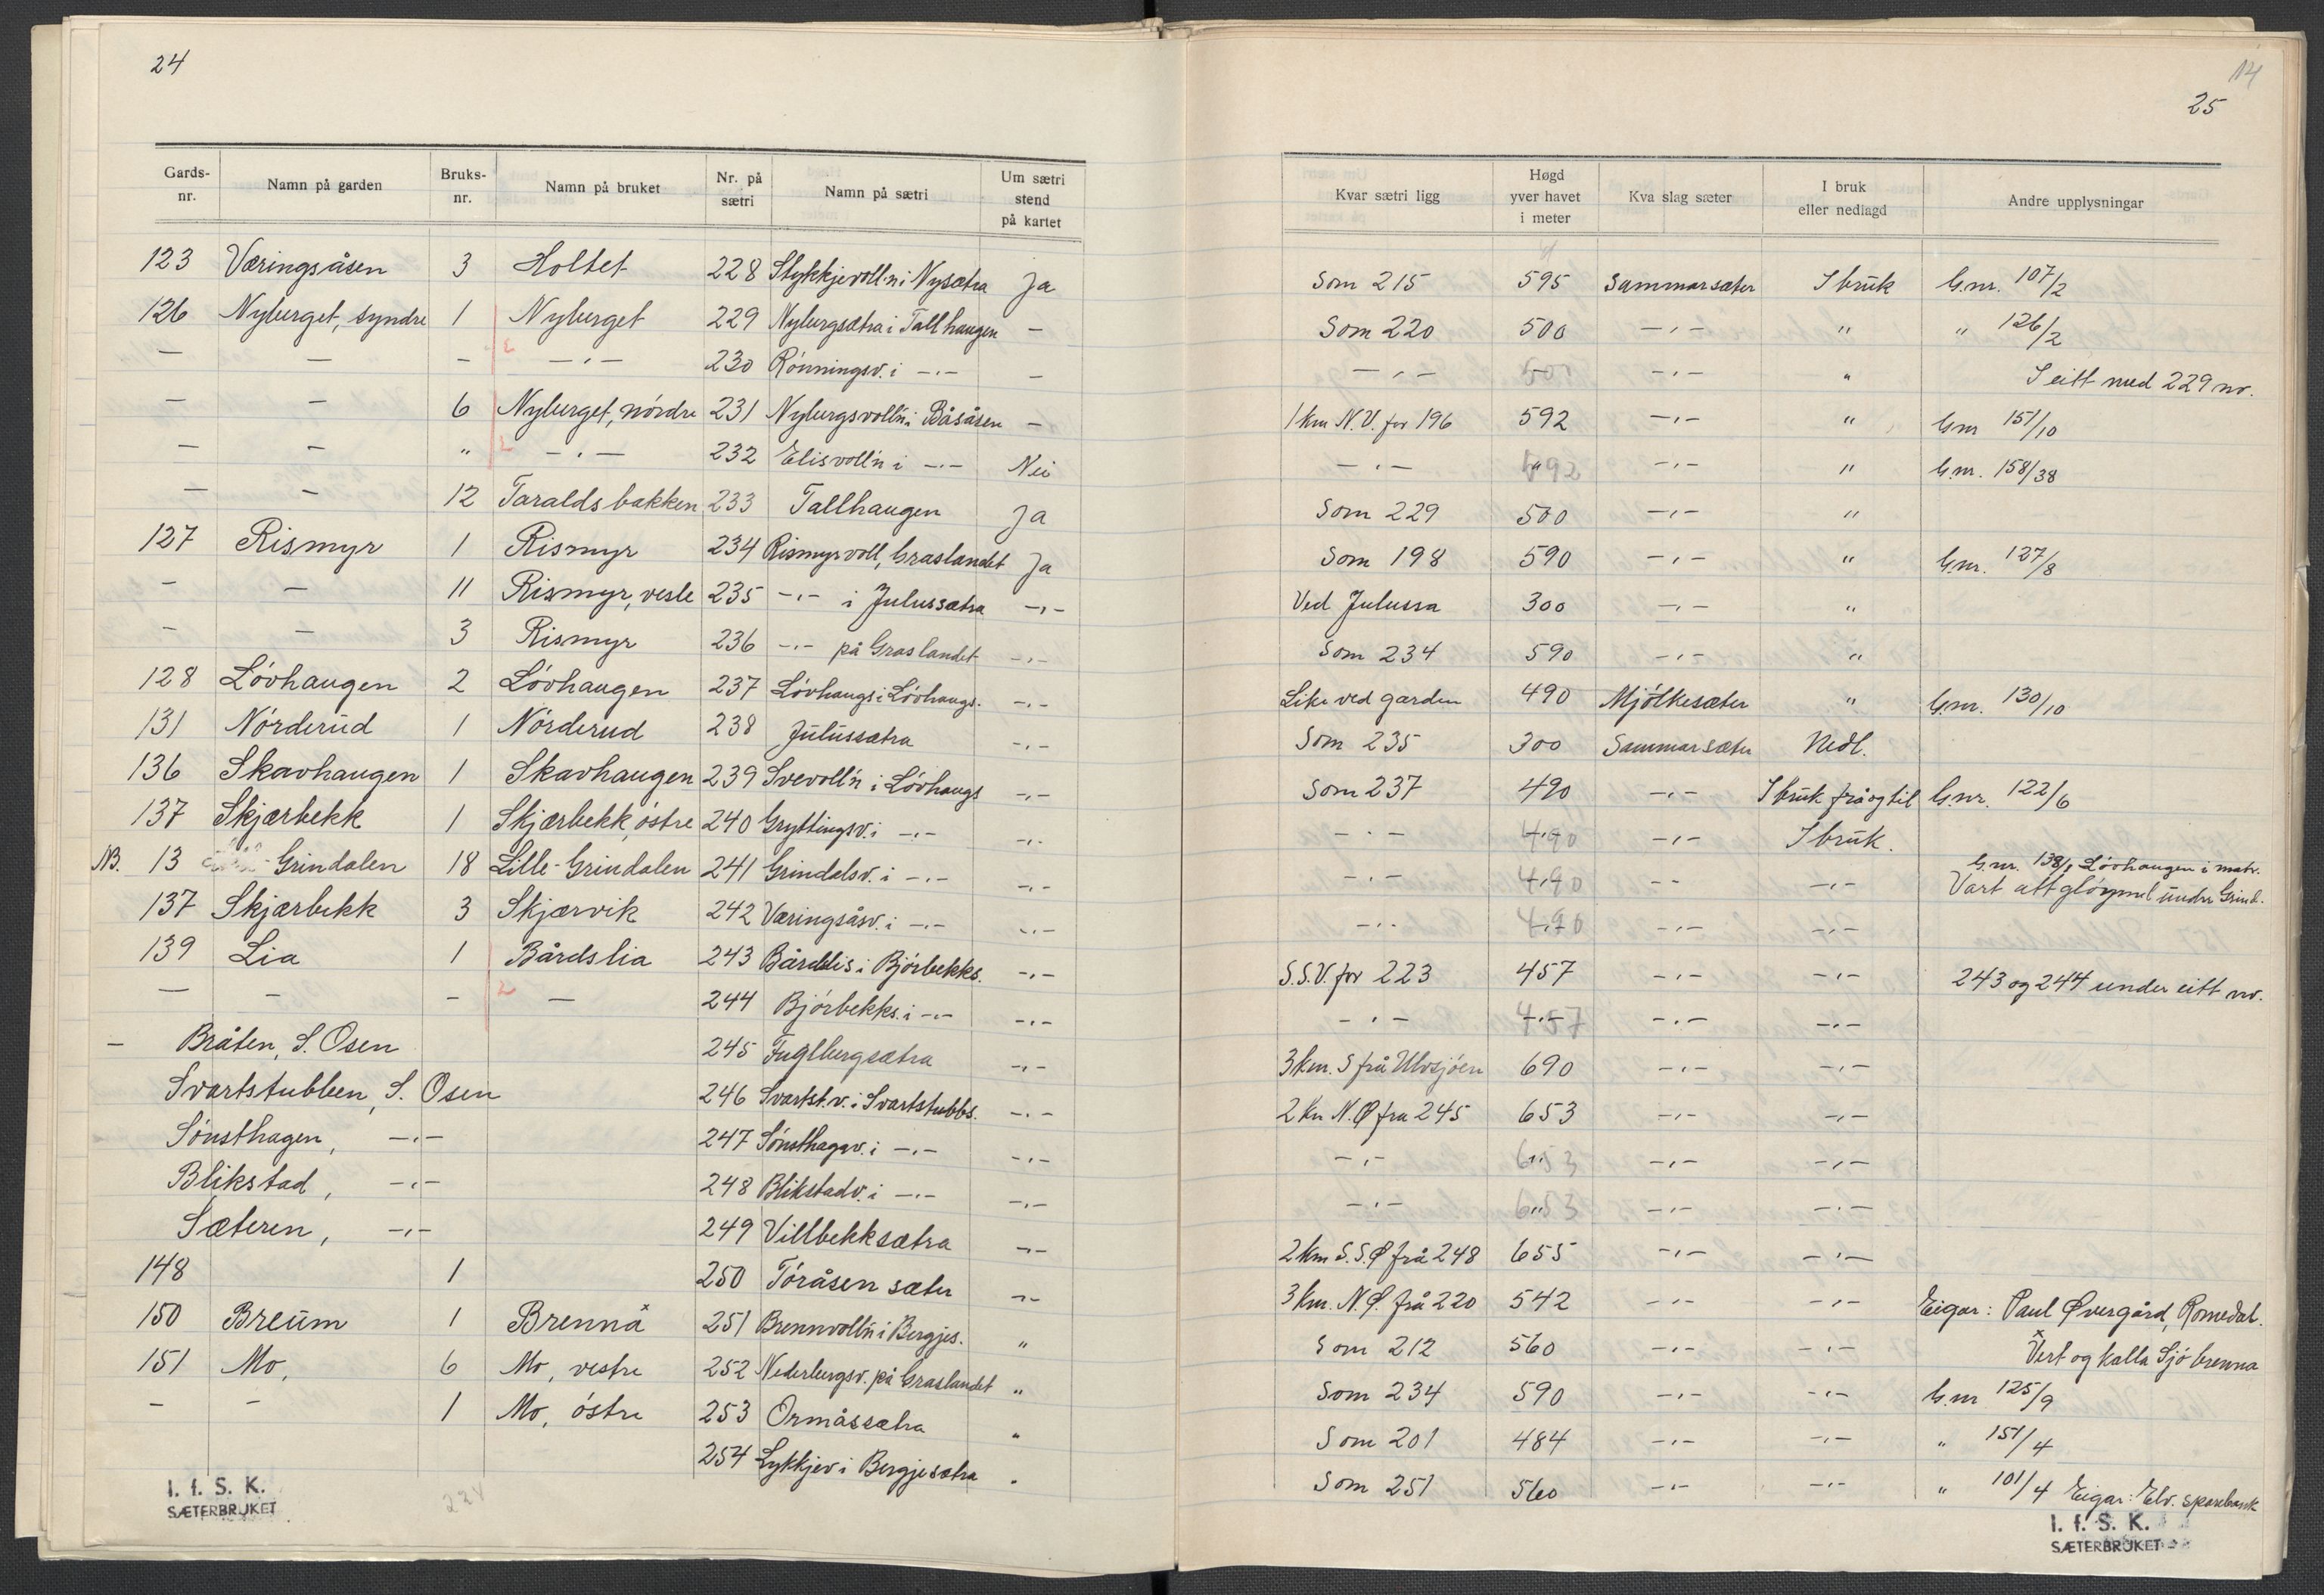 24
Gards-nr. Namn på garden Bruks-nr. Namn på bruket Nr. på sætri Namn på sætri Um sætri stend på kartet
123 Væringsåsen 3 Holtet 228 Stykkjevoll'n i Nysætra Ja
126 Nyberget, syndre 1 Nyberget 229 Nybergsætra i Tallhaugen –
– – – –"– 230 Rønningsv. i –"– –
– – 6 Nyberget, nørdre 231 Nybergsvoll'n i Båsåsen –
– – " –"– 232 Elisvoll'n i –"– Nei
– – 12 Taraldsbakken 233 Tallhaugen Ja
127 Rismyr 1 Rismyr 234 Rismyrvoll, Graslandet Ja
– – 11 Rismyr, vesle 235 –"– i Julussætra –"–
– – 3 Rismyr 236 –"– på Graslandet –"–
128 Løvhaugen 2 Løvhaugen 237 Løvhaugs i Løvhaugs. –"–
131 Nørderud 1 Nørderud 238 Julussætra –"–
136 Skavhaugen 1 Skavhaugen 239 Svevoll'n i Løvhaugs –"–
137 Skjærbekk 1 Skjærbekk, østre 240 Gryttingsv. i –"– –"–
NB. 13 Grindalen 18 Lille-Grindalen 241 Grindalsv. i –"– –"–
137 Skjærbekk 3 Skjærvik 242 Væringsåsv. i –"– –"–
139 Lia 1 Bårdslia 243 Bårdslis i Bjørbekks. –"–
– – – – 244 Bjørbekks. i –"– –"–
– Bråten, S. Osen 245 Fuglbergsætra –"–
Svartstubben, S. Osen 246 Svartst.v. i Svartstubbs. –"–
Sønsthagen, –"– 247 Sønsthagav. i –"– –"–
Blikstad, –"– 248 Blikstadv. i –"– –"–
Sæteren, –"– 249 Villbekksætra –"–
148 1 250 Tøråsen sæter –"–
150 Breum 1 Brenna x 251 Brennvoll'n i Bergjes. "
151 Mo, 6 Mo, vestre 252 Nederbergsv. på Graslandet "
– – 1 Mo, østre 253 Ormåssætra "
254 Lykkjev i Bergjesætra "
I. f. S. K.
SÆTERBRUKET
224
14
25
Kvar sætri ligg Høgd yver havet i meter Kva slag sæter I bruk eller nedlagd Andre upplysningar
Som 215 595 Sammarsæter I bruk G.nr. 107/2
Som 220 500 –"– " " 126/2
–"– 500 –"– " I eitt med 229 nr.
1 km N.V. for 196 592 –"– " Gnr 151/10
–"– 592 –"– " G.nr. 158/38
Som 229 500 –"– "
Som 198 590 –"– " G.nr. 127/8
Ved Julussa 300 –"– "
Som 234 590 –"– "
Like ved garden 490 Mjølkesæter " G.nr. 130/10
Som 235 300 Sammarsæter Nedl.
Som 237 490 –"– I bruk frå og til G.nr. 122/6
–"– 490 –"– I bruk.
–"– 490 –– –"– G.nr. 138/1 Løvhaugen i matr. Vart attgløymd under Grind.
–"– 490 –"– –"–
S.S.V. for 223 457 –"– –"– 243 og 244 under eitt nr.
–"– 457 –"– –"–
3 km. S frå Ulvsjøen 690 –"– –"–
2 km N.Ø fra 245 653 –"– –"–
–"– 653 –"– –"–
–"– 653 –"– –"–
2 km S.S.Ø frå 248 655 –"– –"–
3 km. N.Ø. frå 220 542 –"– –"– Eigar: Paul Øvergård, Romedal.
Som 212 560 –"– –"– x Vert og kalla Sjøbrenna
Som 234 590 –"– –"– G.nr 125/9
Som 201 484 –"– –"– " 151/4
Som 251 560 –"– –"– " 101/4 Eigar: Elv. sparebank
I. f. S. K.
SÆTERBRUKET